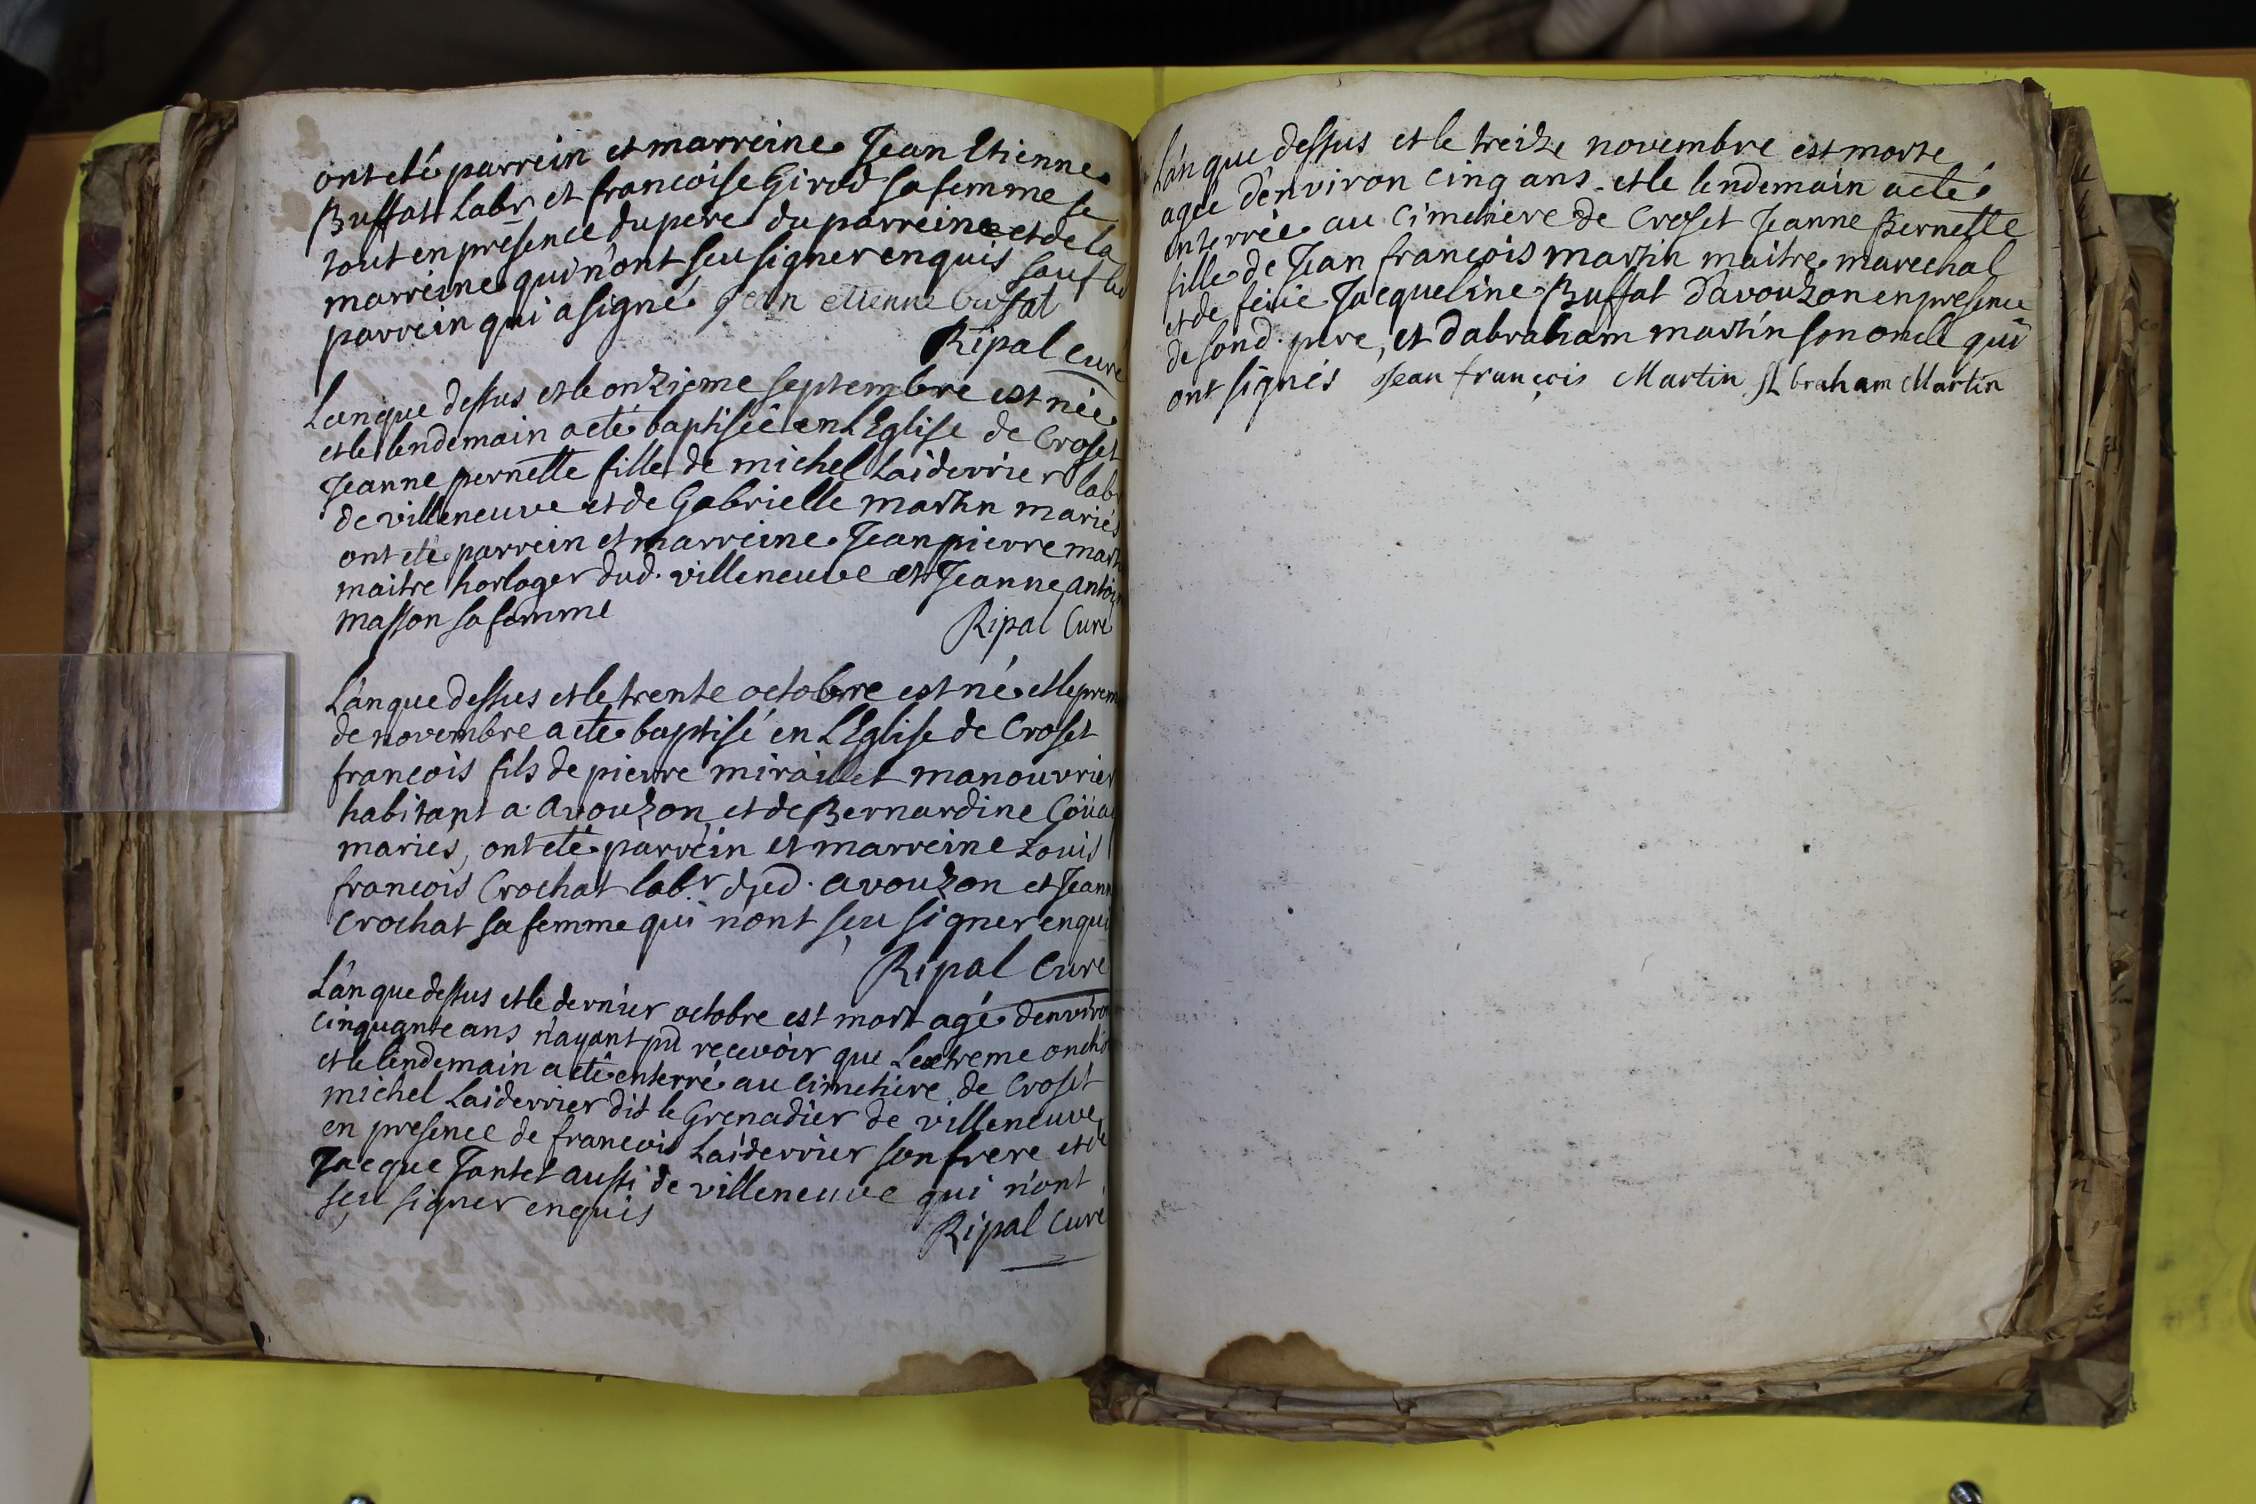 ont eté parrein et marreine Jean Etienne
Buffat labr et francoise Girod sa femme le
tout en présence du pere du parreine et de la
marreine qui n'ont seu signer enquis sauf le
parrein qui a signé jean etienne buffat
Ripal curé
L'an que dessus et le onzieme septembre est née
et le lendemain a eté baptisée en l'Eglise de Croset
Jeanne pernette fille de michel Laiderrier lab
de villeneuve et de Gabrielle martin mariés
ont eté parrein et marreine Jean pierre mart
maitre horloger dud. villeneuve et Jeanne Antoi
masson sa femme
Ripal Curé
L'an que dessus et le trente octobre est né et le prem
de novembre a eté baptisé en l'Eglise de Croset
francois fils de pierre mirallet manouvrier
habitant a avouzon et de Bernardine
maries, ont eté parrein et marreine Louis
francois Crochat labr dud. avouzon et Jeann
Crochat sa femme qui n'ont sçu signer enqui
Ripal Curé
L'an que dessus et le dernier octobre est mort agé denviron
cinquante ans n'ayant pû recevoir que Lextreme onctio
et le lendemain a eté enterré au cimetiere de Croset
michel Laiderrier dit le Grenadier de villeneuve
en presence de francois Laiderrier son frere et de
Jacque Jantet aussi de villeneuve qui n'ont
sçu signer enquis
Ripal Curé
L'an que dessus et le treize novembre est morte
agée d'environ cinq ans et le lendemain a eté
enterrée au Cimetiere de Croset Jeanne Bernette
fille de Jean françois martin maitre marechal
et de feüe Jacqueline Buffat d'avouzon en presence
de sond. pere, et d'abraham martin son oncle qui
ont signés Jean françois Martin Abraham Martin